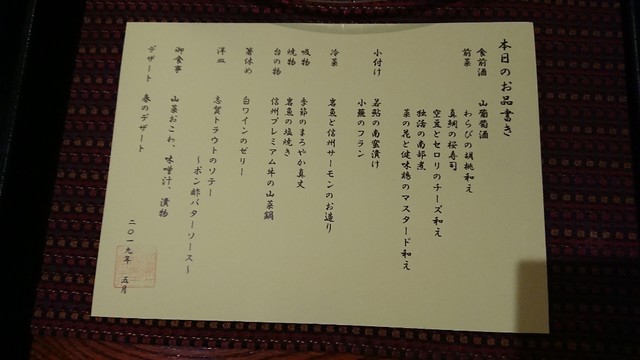 本日のお品書き
食前酒 山葡萄酒
前菜 わらびの胡桃和え
真鯛の桜寿司
空豆とセロリのチーズ和え
独活の南部煮
菜の花と健味鶏のマスタード和え
小付け 若鮎の南蛮漬け
小蕪のフラン
冷菜 岩魚と信州サーモンのお造り
吸物 季節のまろやか真丈
焼物 岩魚の塩焼き
台の物 信州プレミアム牛の山菜鍋
箸休め 白ワインのゼリー
洋皿 志賀トラウトのソテー
～ポン酢バターソース～
御食事 山菜おこわ、味噌汁、漬物
デザート 春のデザート
二〇一九年 五月